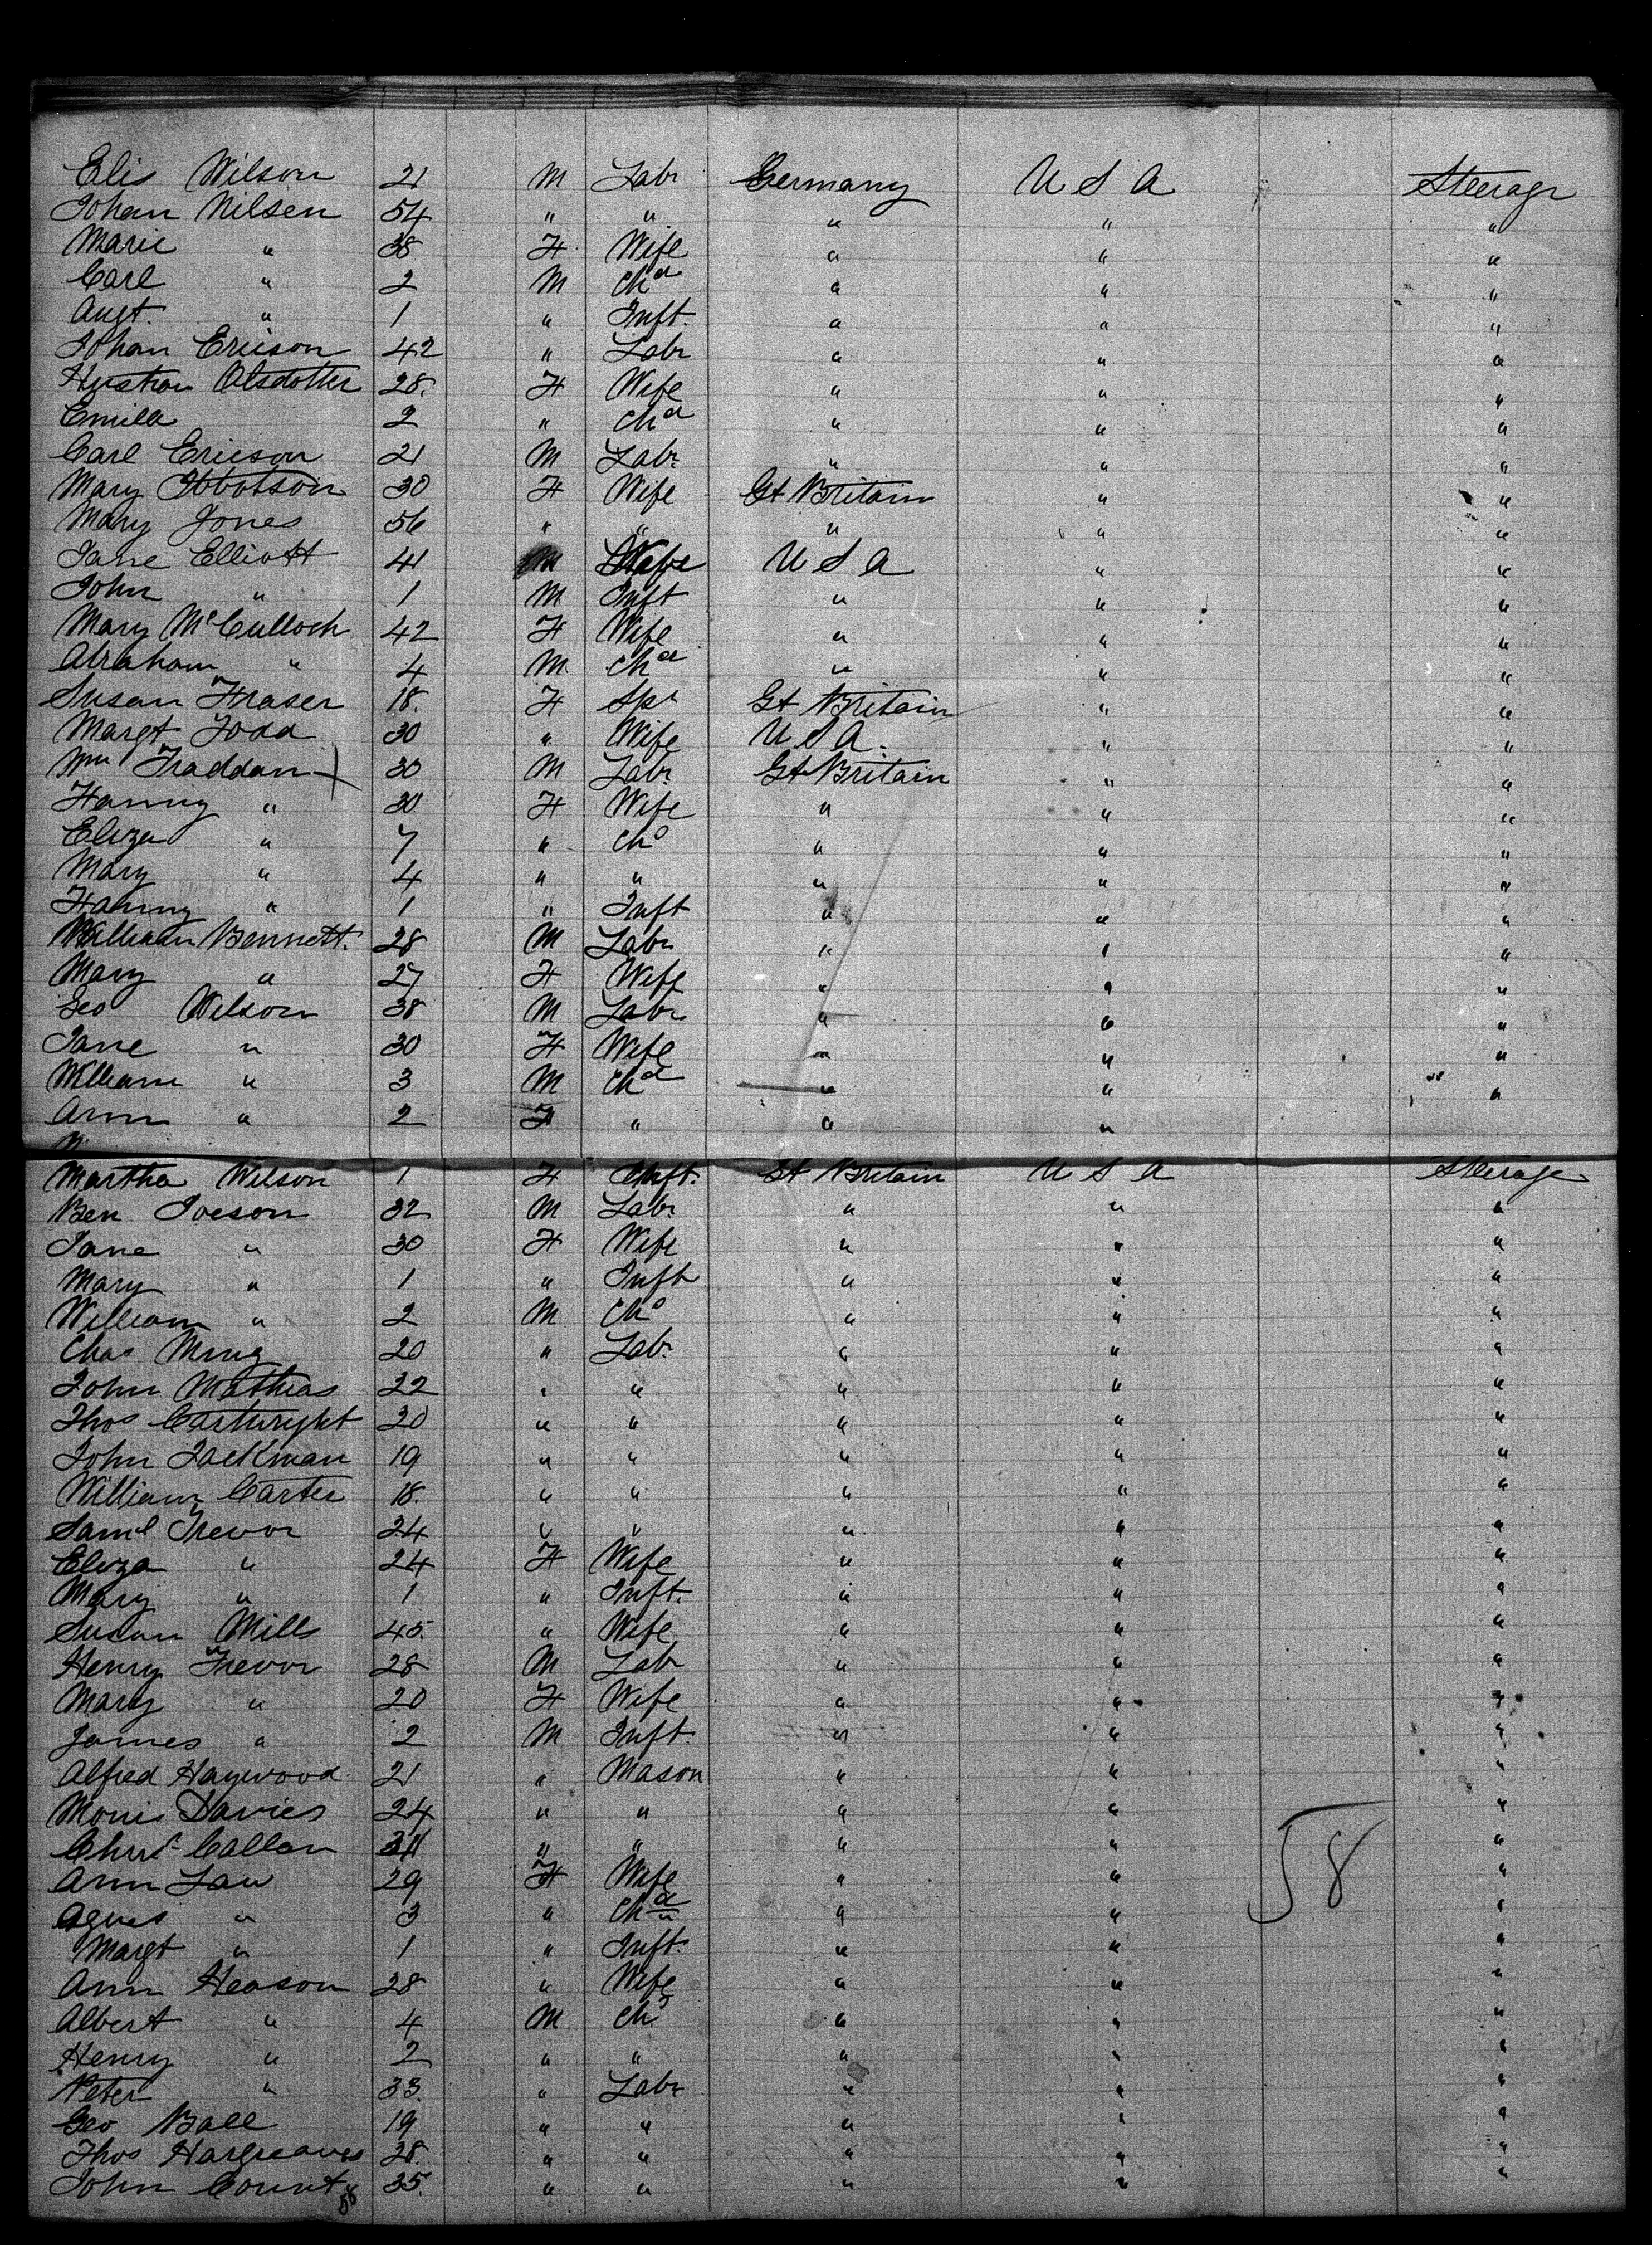 Elis Wilson 21 M Labr Germany U S A Steerage
Johan Nilsen 54 " " " " "
Marie " 38 F Wife " " "
Carl " 2 M Chd " " "
Augt. " 1 " Inft. " " "
Johan Ericson 42 " Labr " " "
Olsdotter 28. F Wife " " "
Emila 2 " Chd " " "
Carl Ericson 21 M Labr " " "
Mary Ibbotson 30 F Wife Gt Britain " "
Mary Jones 56 " " " " "
Jane Elliott 41 M Wife U S A " "
John " 1 M Inft " " "
Mary McCulloch 42 F Wife " " "
Abraham " 4 M Chd " " "
Susan Fraser 18. F Spr Gt Britain " "
Margt Todd 30 " Wife U S A. " "
Wm Fraddan 30 M Labr Gt Britain " "
Fanny " 30 F Wife " " "
Eliza " 7 " Chd " " "
Mary " 4 " " " " "
Fanny " 1 " Inft " " "
William Bennett. 28 M Labr " " "
Mary " 27 F Wife " " "
Geo Wilson 38 M Labr " " "
Jane " 30 F Wife " " "
William " 3 M Chd " " "
Ann " 2 F " " "
Martha Wilson 1 F Inft. Gt Britain U S A Steerage
Ben Joeson 32 M Labr " " "
Jane " 30 F Wife " " "
Mary " 1 " Inft " " "
William " 2 M Chd " " "
Chas 20 " Labr " " "
John Mathias 22 " " " " "
Thos Cartwright 20 " " " " "
John Jackman 19 " " " " "
William Carter 18. " " " " "
Saml Trevor 24 " " " " "
Eliza " 24 F Wife " " "
Mary " 1 " Inft. " " "
Susan Mills 45. " Wife " " "
Henry Trevor 28 M Lab " " "
Mary " 20 F Wife " " "
James " 2 M Inft. " " "
Alfred Haywood 21 " Mason " " "
Morris Davies 24 " " " " "
Chrisr Callan " " " " "
Ann Law 29 F Wife " " "
58
Agnes " 3 " Chd " " "
Margt " 1 " Inft. " " "
Ann Heason 28 " Wife " " "
Albert " 4 M Chd " " "
Henry " 2 " " " " "
Peter " 33 " Labr " " "
Geo Ball 19 " " " " "
Thos Hargreaves 28. " " " " "
John County 35. " " " " "
58